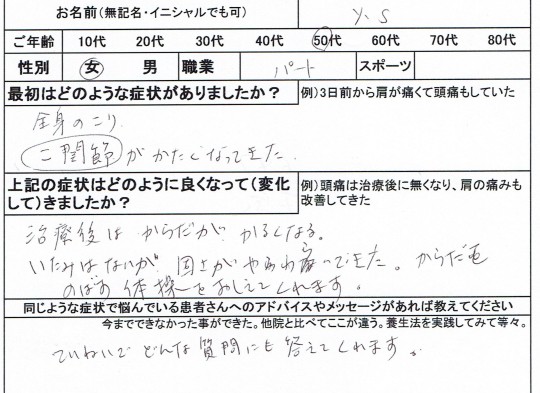 お名前(無記名・イニシャルでも可) Y.S
ご年齢 10代 20代 30代 40代 50代 60代 70代 80代
性別 女 男 職業 パート スポーツ
最初はどのような症状がありましたか? 例)3日前から肩が痛くて頭痛もしていた
全身のこり
関節がかたくなってきた.
上記の症状はどのように良くなって(変化して)きましたか? 例)頭痛は治療後に無くなり、肩の痛みも改善してきた
治療後は からだが かるくなる。
いたみはないが 固さがやわらいできた。からだを
のばす 体操をおしえてくれます。
同じような症状で悩んでいる患者さんへのアドバイスやメッセージがあれば教えてください
今までできなかった事ができた。他院と比べてここが違う。養生法を実践してみて等々。
ていねいで どんな質問にも 答えてくれます。